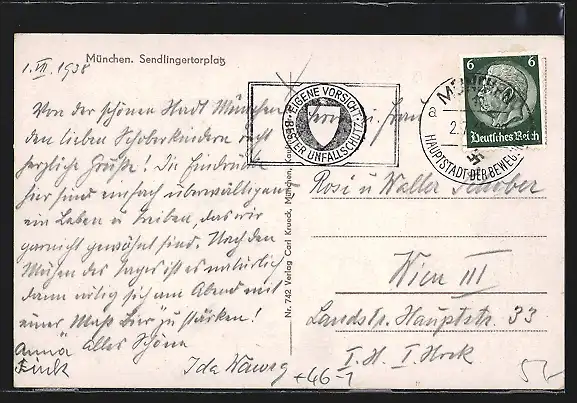 München. Sendlingertorplatz
1. VII. 1938
Von der schönen Stadt München
den lieben Schoberkindern recht
herzliche Grüße! Die Eindrücke
hier sind einfach überwältigend
ein Leben u. treiben, das wir
garnicht gewöhnt sind. Nach den
Mühen des Tages ist es natürlich
dann nötig sich am Abend mit
einer Maß Bier zu stärken!
alles Schöne
Anna
Fink
Ida
+46-1
Nr. 742 Verlag Carl Krueck, München,
EIGENE VORSICHT
DER UNFALLSCHUTZ
Frau
Rosi u Walter Schober
Wien III
Landstr. Hauptstr. 33
I. H. I. Stock
6 6
Deutsches Reich
MÜNCHEN
a
2.
HAUPTSTADT DER BEWEG